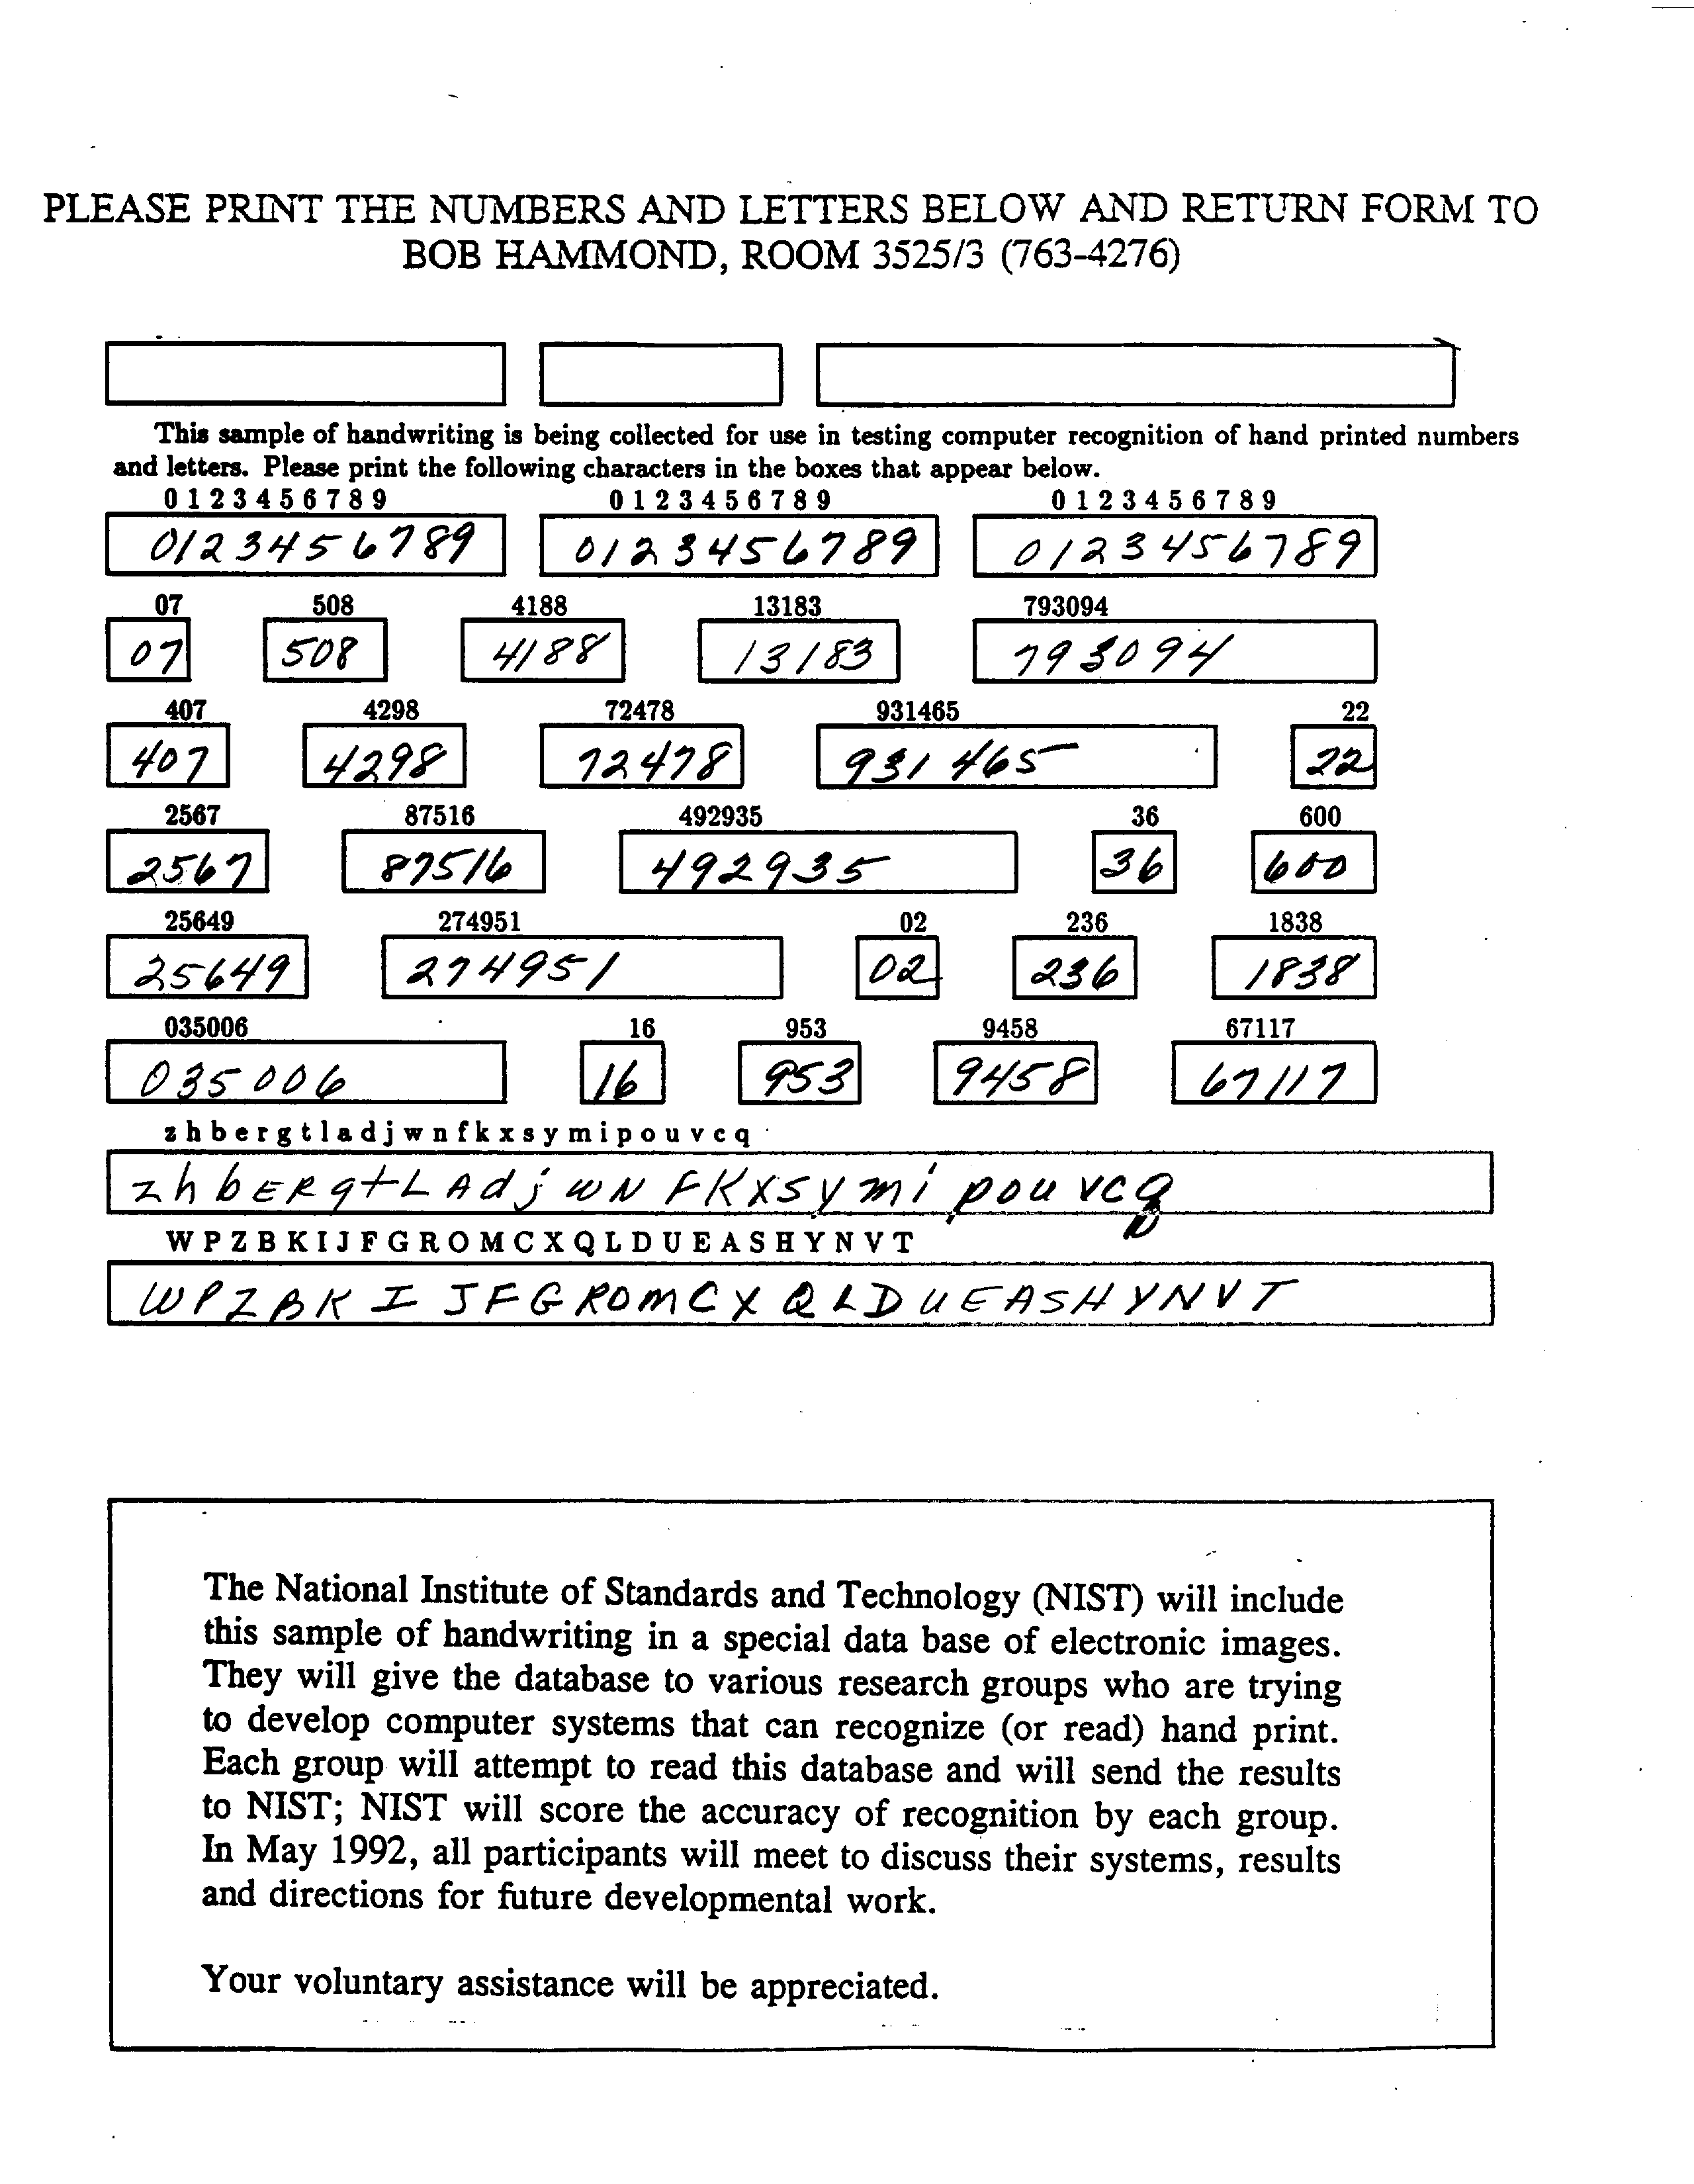 PLEASE PRINT THE NUMBERS AND LETTERS BELOW AND RETURN FORM TO
BOB HAMMOND, ROOM 3525/3 (763-4276)
This sample of handwriting is being collected for use in testing computer recognition of hand printed numbers
and letters. Please print the following characters in the boxes that appear below.
0 1 2 3 4 5 6 7 8 9 0 1 2 3 4 5 6 7 8 9 0 1 2 3 4 5 6 7 8 9
0123456789 0123456789 0123456789
07 508 4188 13183 793094
07 508 4188 13183 793094
407 4298 72478 931465 22
407 4298 72478 931465 22
2567 87516 492935 36 600
2567 87516 492935 36 600
25649 274951 02 236 1838
25649 274951 02 236 1838
035006 16 953 9458 67117
035006 16 953 9458 67117
z h b e r g t l a d j w n f k x s y m i p o u v c q
z h b E R g t L A d j w N F K X S y m i p o u v c q
W P Z B K I J F G R O M C X Q L D U E A S H Y N V T
W P Z B K I J F G R O M C X Q L D U E A S H Y N V T
The National Institute of Standards and Technology (NIST) will include
this sample of handwriting in a special data base of electronic images.
They will give the database to various research groups who are trying
to develop computer systems that can recognize (or read) hand print.
Each group will attempt to read this database and will send the results
to NIST; NIST will score the accuracy of recognition by each group.
In May 1992, all participants will meet to discuss their systems, results
and directions for future developmental work.
Your voluntary assistance will be appreciated.